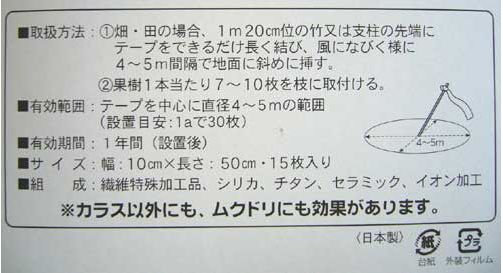 ■取扱方法：①畑・田の場合、1m20cm位の竹又は支柱の先端に
テープをできるだけ長く結び、風になびく様に
4〜5m間隔で地面に斜めに挿す。
②果樹1本当たり7〜10枚を枝に取付ける。
■有効範囲：テープを中心に直径4〜5mの範囲
(設置目安：1aで30枚)
4〜5m
■有効期間：1年間（設置後）
■サイズ：幅：10cm×長さ：50cm・15枚入り
■組成：繊維特殊加工品、シリカ、チタン、セラミック、イオン加工
※カラス以外にも、ムクドリにも効果があります。
〈日本製〉
紙
台紙
プラ
外装フィルム